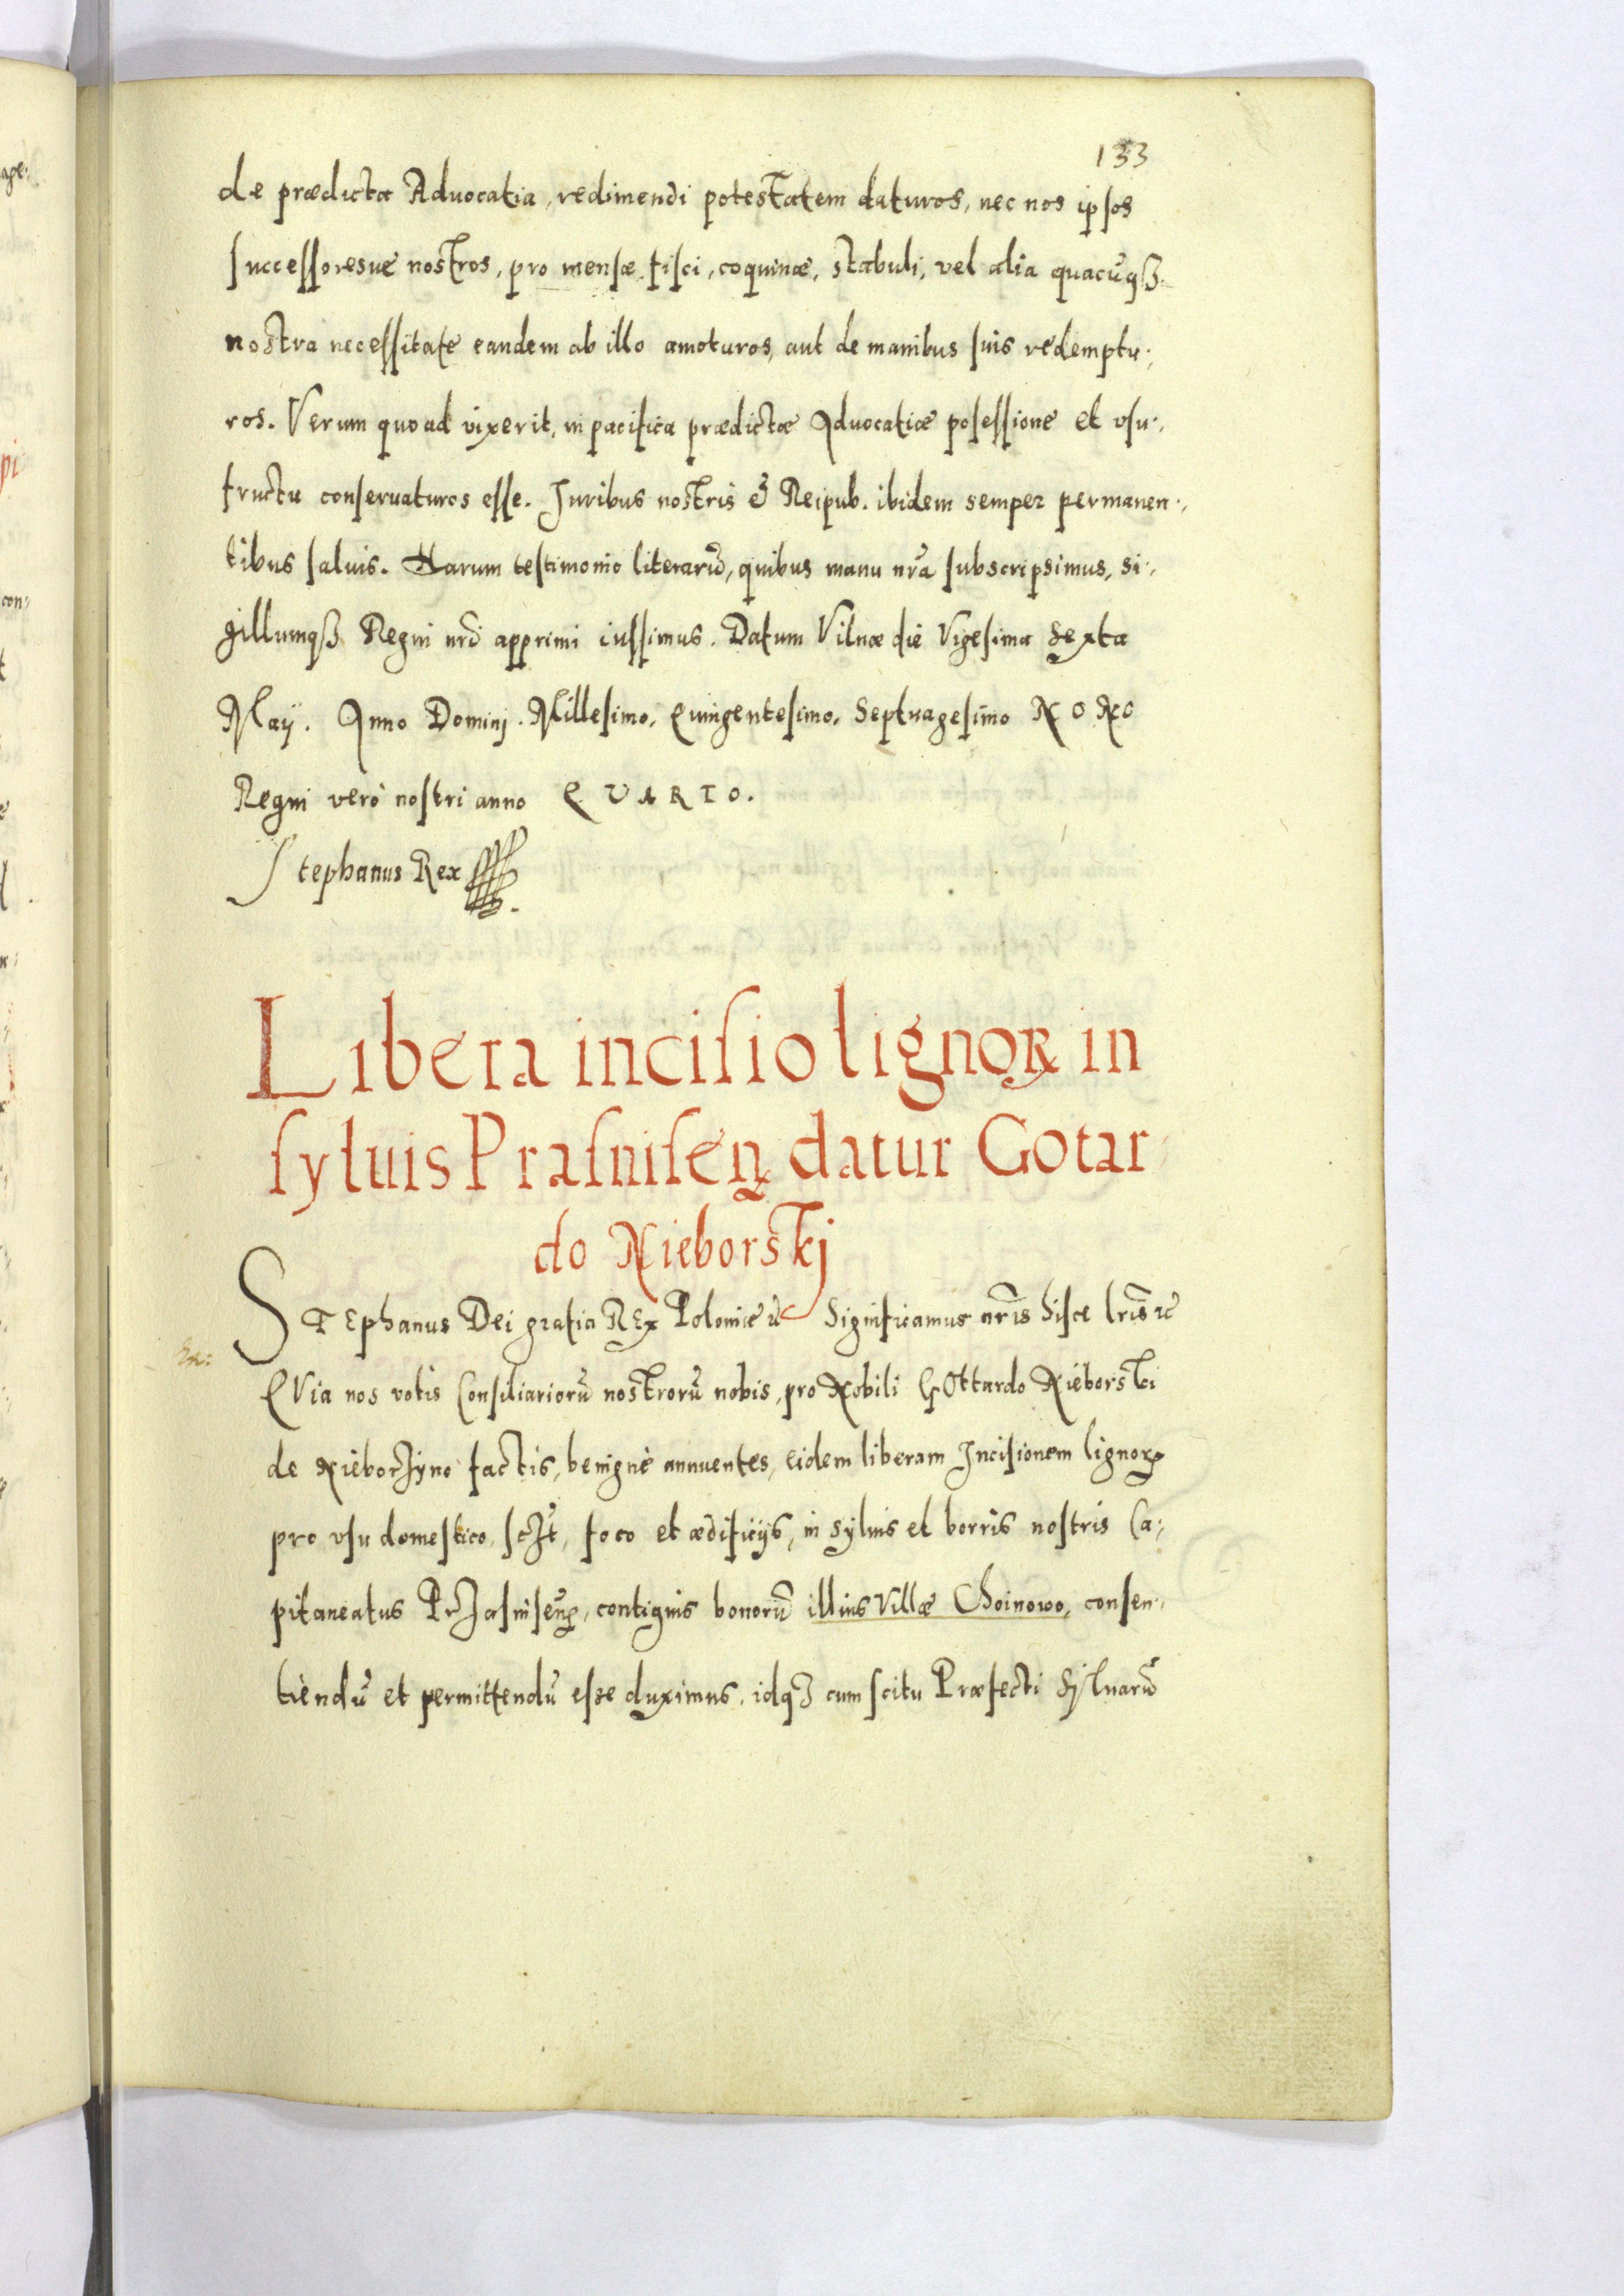 133
de prædicta Aduocatia, redimendi potestatem daturos, nec nos ipsos
successoresue nostros, pro mensæ fisci, coquinæ, stabuli, vel alia quacūqȝ
nostra necessitate eandem ab illo amoturos, aut de manibus suis redemptu:
ros. Verum quoad vixerit, in pacifica prædictæ Aduocatiæ posessione et vsu:
fructu conseruaturos esse. Juribus nostris & Reipub. ibidem semper permanen:
tibus saluis. Harum testimonio literarū, quibus manu nr̄a subscripsimus, si:
gillumqȝ Regni nr̄i apprimi iussimus. Datum Vilnæ die Vigesima Sexta
Maij. Anno Domini. Millesimo, Quingentesimo, Septuagesimo NONO
Regni vero nostri anno QVARTO.
Stephanus Rex
Libera incisio lignoꝝ in
syluis Prasnisen̄ datur Gotar
do Nieborskj
STEphanus Dei gratia REx Poloniæ ꝛc Significamus nr̄is hisce lr̄is ꝛc
QVia nos votis Consiliariorū nostrorū nobis, pro Nobili GOttardo Nieborski
de Nieborzyno factis, benigne annuentes, eidem liberam Incisionem lignoꝝ
pro vsu domestico, sczt, foco et ædificijs, in syluis et borris nostris Ca:
pitaneatus Przasnisen̄, contiguis bonorū illius Villæ Choinowo, consen:
tiendū et permittendū esse duximus, idqȝ cum scitu Præfecti Syluarū